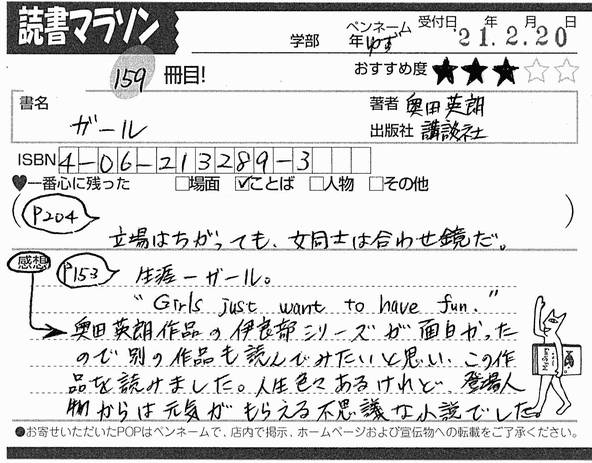 読書マラソン
学部 年 ペンネーム ゆず 受付日 '21年2月20日
159冊目! おすすめ度 ★★★☆☆
書名 ガール
著者 奥田英朗
出版社 講談社
ISBN 4-06-213289-3
♥一番心に残った □場面 ☑ことば □人物 □その他
(P204
立場はちがっても、女同士は合わせ鏡だ。)
感想 P153 生涯一ガール。
"Girls just want to have fun."
→奥田英朗作品の伊良部シリーズが面白かった
ので別の作品も読んでみたいと思い、この作
品を読みました。人生色々あるけれど、登場人
物からは元気がもらえる不思議な小説でした。
●お寄せいただいたPOPはペンネームで、店内で掲示、ホームページおよび宣伝物への転載をご了承ください。